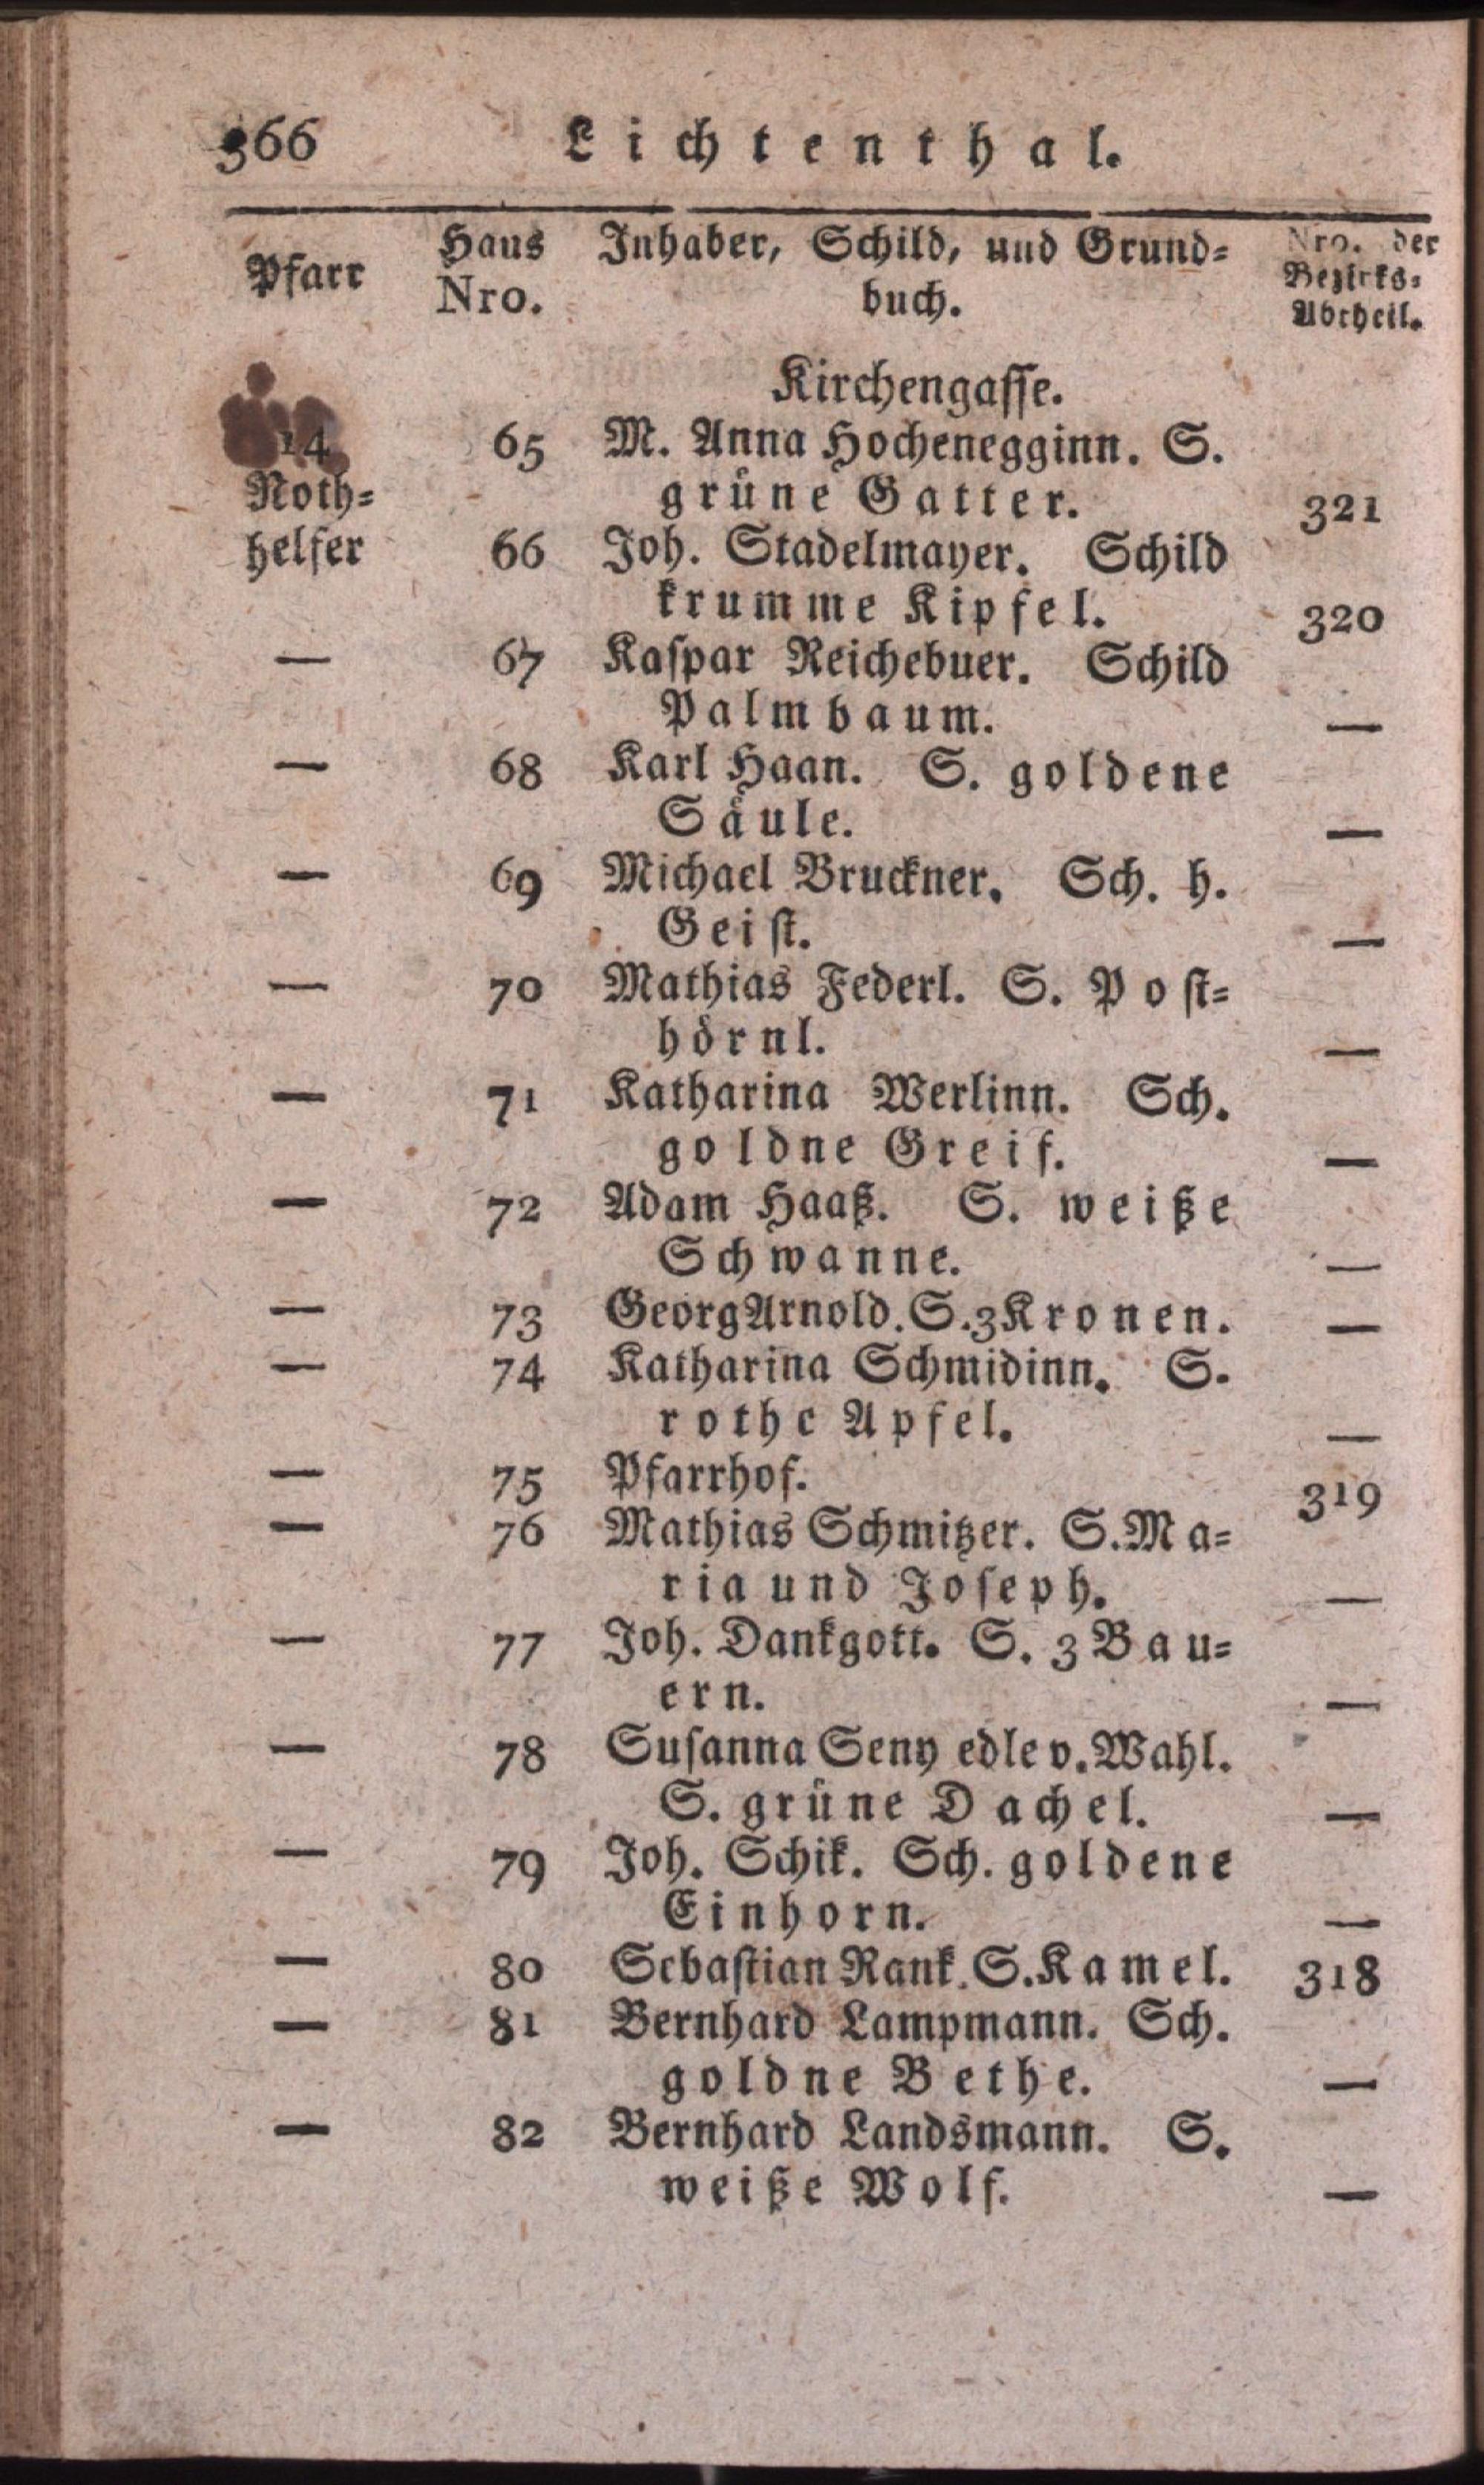 366 Lichtenthal.
Pfarr Haus Nro. Inhaber, Schild, und Grund=
buch. Nro. der Bezirks= Abtheil.
Kirchengasse.
14 65 M. Anna Hochenegginn. S.
Noth= grüne Gatter. 321
helfer 66 Joh. Stadelmayer. Schild
krumme Kipfel. 320
— 67 Kaspar Reichebuer. Schild
Palmbaum. —
— 68 Karl Haan. S. goldene
Säule. —
— 69 Michael Bruckner. Sch. h.
Geist. —
— 70 Mathias Federl. S. Post=
hörnl. —
— 71 Katharina Werlinn. Sch.
goldne Greif. —
— 72 Adam Haaß. S. weiße
Schwanne. —
— 73 Georg Arnold. S. 3 Kronen. —
— 74 Katharina Schmidinn. S.
rothe Apfel. —
— 75 Pfarrhof. 319
— 76 Mathias Schmitzer. S. Ma=
ria und Joseph. —
— 77 Joh. Dankgott. S. 3 Bau=
ern. —
— 78 Susanna Seny edle v. Wahl.
S. grüne Dachel. —
— 79 Joh. Schik. Sch. goldene
Einhorn. —
— 80 Sebastian Rank. S. Kamel. 318
— 81 Bernhard Lampmann. Sch.
goldne Bethe. —
— 82 Bernhard Landsmann. S.
weiße Wolf. —